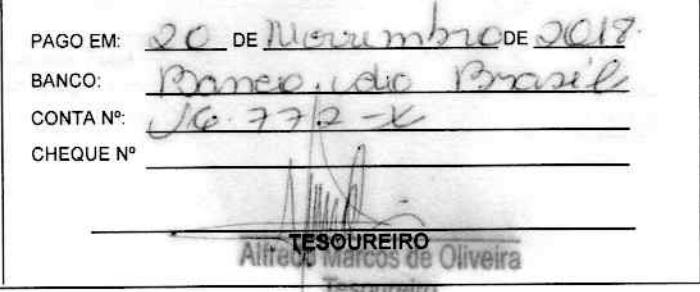 PAGO EM: 20 DE Novembro DE 2018.
BANCO: Banco do Brasil
CONTA Nº: 16.772-X
CHEQUE Nº
TESOUREIRO
Alfredo Marcos de Oliveira
Tesoureiro